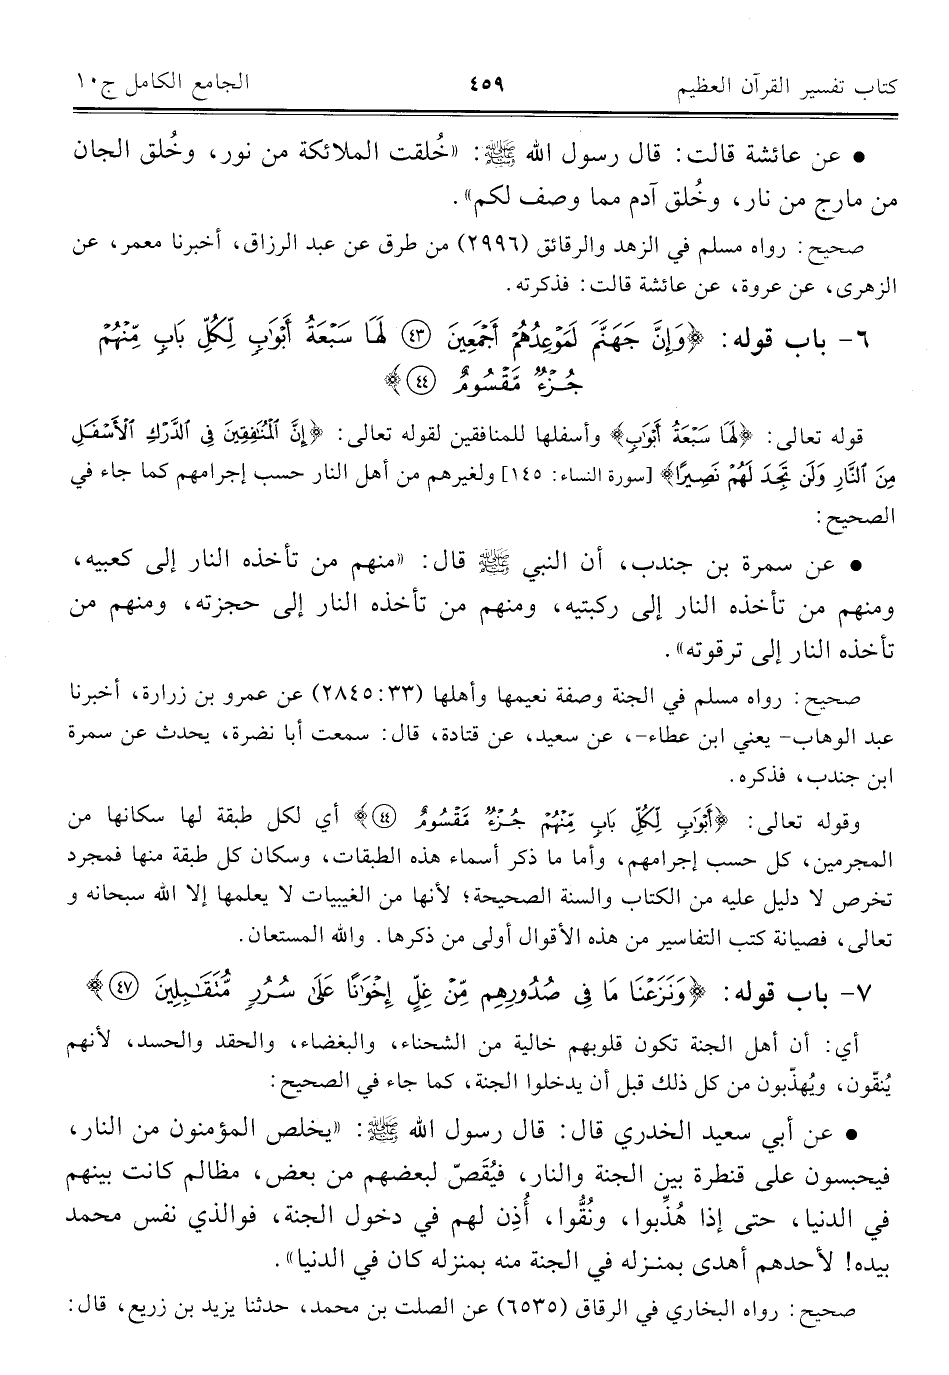 كتاب تفسير القرآن العظيم ٤٥٩ الجامع الكامل ج١٠
• عن عائشة قالت: قال رسول الله ﷺ: «خُلقت الملائكة من نور، وخُلق الجان
من مارج من نار، وخُلق آدم مما وصف لكم».
صحيح: رواه مسلم في الزهد والرقائق (٢٩٩٦) من طرق عن عبد الرزاق، أخبرنا معمر، عن
الزهرى، عن عروة، عن عائشة قالت: فذكرته.
٦- باب قوله: ﴿وَإِنَّ جَهَنَّمَ لَمَوْعِدُهُمْ أَجْمَعِينَ ٤٣ لَهَا سَبْعَةُ أَبْوَٰبٍ لِّكُلِّ بَابٍ مِّنْهُمْ
جُزْءٌ مَّقْسُومٌ ٤٤﴾
قوله تعالى: ﴿لَهَا سَبْعَةُ أَبْوَٰبٍ﴾ وأسفلها للمنافقين لقوله تعالى: ﴿إِنَّ ٱلْمُنَٰفِقِينَ فِى ٱلدَّرْكِ ٱلْأَسْفَلِ
مِنَ ٱلنَّارِ وَلَن تَجِدَ لَهُمْ نَصِيرًا﴾ [سورة النساء: ١٤٥] ولغيرهم من أهل النار حسب إجرامهم كما جاء في
الصحيح:
• عن سمرة بن جندب، أن النبي ﷺ قال: «منهم من تأخذه النار إلى كعبيه،
ومنهم من تأخذه النار إلى ركبتيه، ومنهم من تأخذه النار إلى حجزته، ومنهم من
تأخذه النار إلى ترقوته».
صحيح: رواه مسلم في الجنة وصفة نعيمها وأهلها (٢٨٤٥:٣٣) عن عمرو بن زرارة، أخبرنا
عبد الوهاب- يعني ابن عطاء-، عن سعيد، عن قتادة، قال: سمعت أبا نضرة، يحدث عن سمرة
ابن جندب، فذكره.
وقوله تعالى: ﴿أَبْوَٰبٍ لِّكُلِّ بَابٍ مِّنْهُمْ جُزْءٌ مَّقْسُومٌ ٤٤﴾ أي لكل طبقة لها سكانها من
المجرمين، كل حسب إجرامهم، وأما ما ذكر أسماء هذه الطبقات، وسكان كل طبقة منها فمجرد
تخرص لا دليل عليه من الكتاب والسنة الصحيحة؛ لأنها من الغيبيات لا يعلمها إلا الله سبحانه و
تعالى، فصيانة كتب التفاسير من هذه الأقوال أولى من ذكرها. والله المستعان.
٧- باب قوله: ﴿وَنَزَعْنَا مَا فِى صُدُورِهِم مِّنْ غِلٍّ إِخْوَٰنًا عَلَىٰ سُرُرٍ مُّتَقَٰبِلِينَ ٤٧﴾
أي: أن أهل الجنة تكون قلوبهم خالية من الشحناء، والبغضاء، والحقد والحسد، لأنهم
يُنقّون، ويُهذّبون من كل ذلك قبل أن يدخلوا الجنة، كما جاء في الصحيح:
• عن أبي سعيد الخدري قال: قال رسول الله ﷺ: «يخلص المؤمنون من النار،
فيحبسون على قنطرة بين الجنة والنار، فيُقَصّ لبعضهم من بعض، مظالم كانت بينهم
في الدنيا، حتى إذا هُذِّبوا، ونُقُّوا، أُذِن لهم في دخول الجنة، فوالذي نفس محمد
بيده! لأحدهم أهدى بمنزله في الجنة منه بمنزله كان في الدنيا».
صحيح: رواه البخاري في الرقاق (٦٥٣٥) عن الصلت بن محمد، حدثنا يزيد بن زريع، قال: